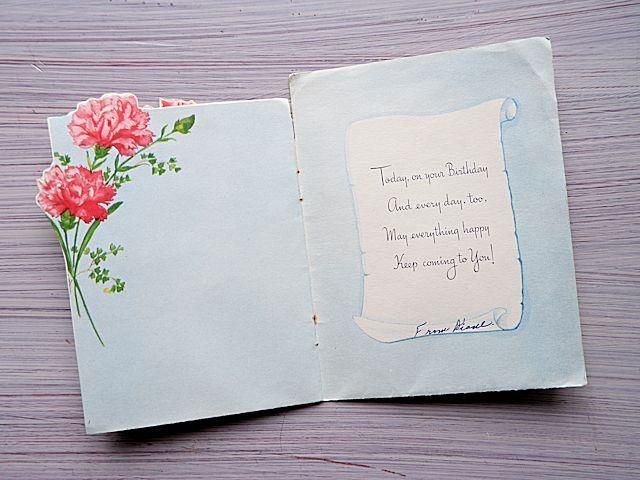 Today, on your Birthday
And every day, too,
May everything happy
Keep coming to You!
From